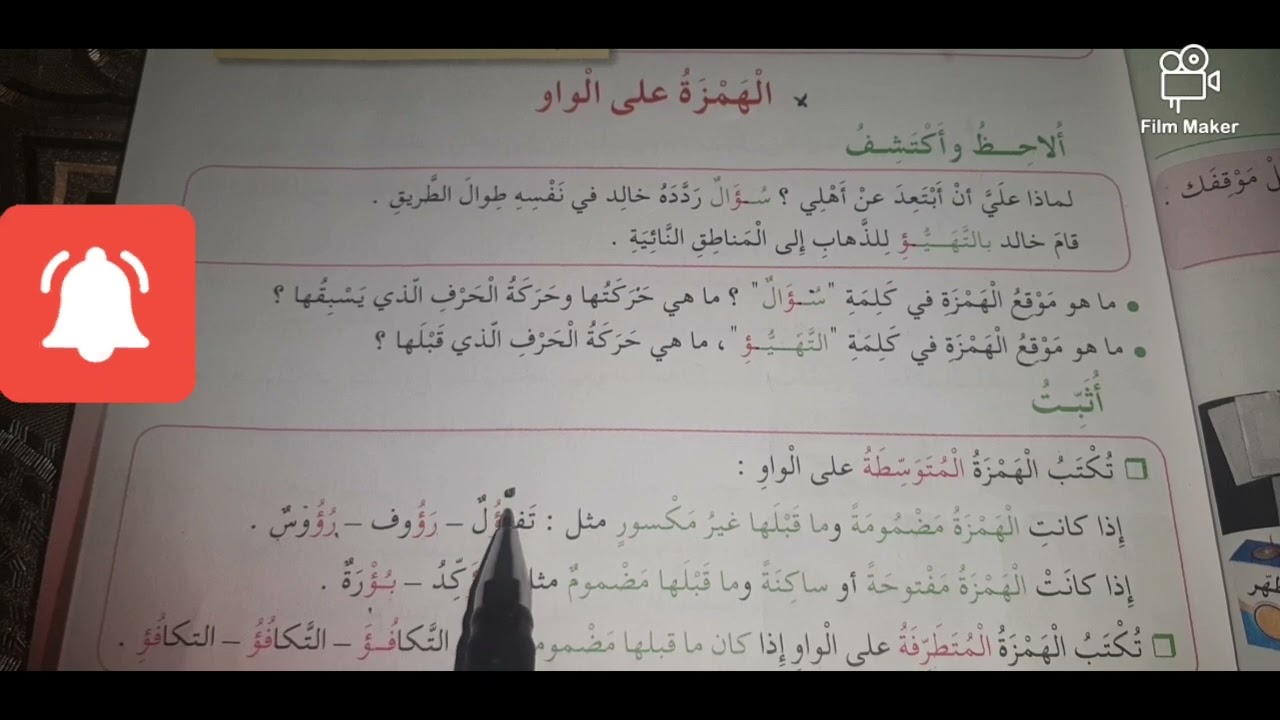 Film Maker
الْهَمْزَةُ على الْواو
أُلاحِـــظُ وأَكْتَشِـفُ
لماذا عَلَيَّ أنْ أَبْتَعِدَ عنْ أَهْلِي ؟ سُـؤَالٌ رَدَّدَهُ خالِد في نَفْسِهِ طِوالَ الطَّريقِ .
قامَ خالد بالتَّهَـيُّـؤِ لِلذَّهابِ إِلى الْمَناطِقِ النَّائِيَةِ .
● ما هو مَوْقِعُ الْهَمْزَةِ في كَلِمَةِ "سُـؤَالٌ" ؟ ما هي حَرَكَتُها وحَرَكَةُ الْحَرْفِ الّذي يَسْبِقُها ؟
● ما هو مَوْقِعُ الْهَمْزَةِ في كَلِمَةِ "التَّهَـيُّـؤِ" ، ما هي حَرَكَةُ الْحَرْفِ الّذي قَبْلَها ؟
أُثَبِّـتُ
تُكْتَبُ الْهَمْزَةُ الْمُتَوَسِّطَةُ على الْواوِ :
إِذا كانتِ الْهَمْزَةُ مَضْمُومَةً وما قَبْلَها غيرُ مَكْسورٍ مثل : – رَؤُوف – رُؤُوسٌ .
إِذا كانَتْ الْهَمْزَةُ مَفْتوحَةً أو ساكِنَةً وما قَبْلَها مَضْمومٌ – بُـؤْرَةٌ .
تُكْتَبُ الْهَمْزَةُ الْمُتَطَرِّفَةُ على الْواوِ إِذا كان ما قبلها التَّكافُـؤَ – التَّكافُؤُ – التكافُؤِ .
لْ مَوْقِفَك :